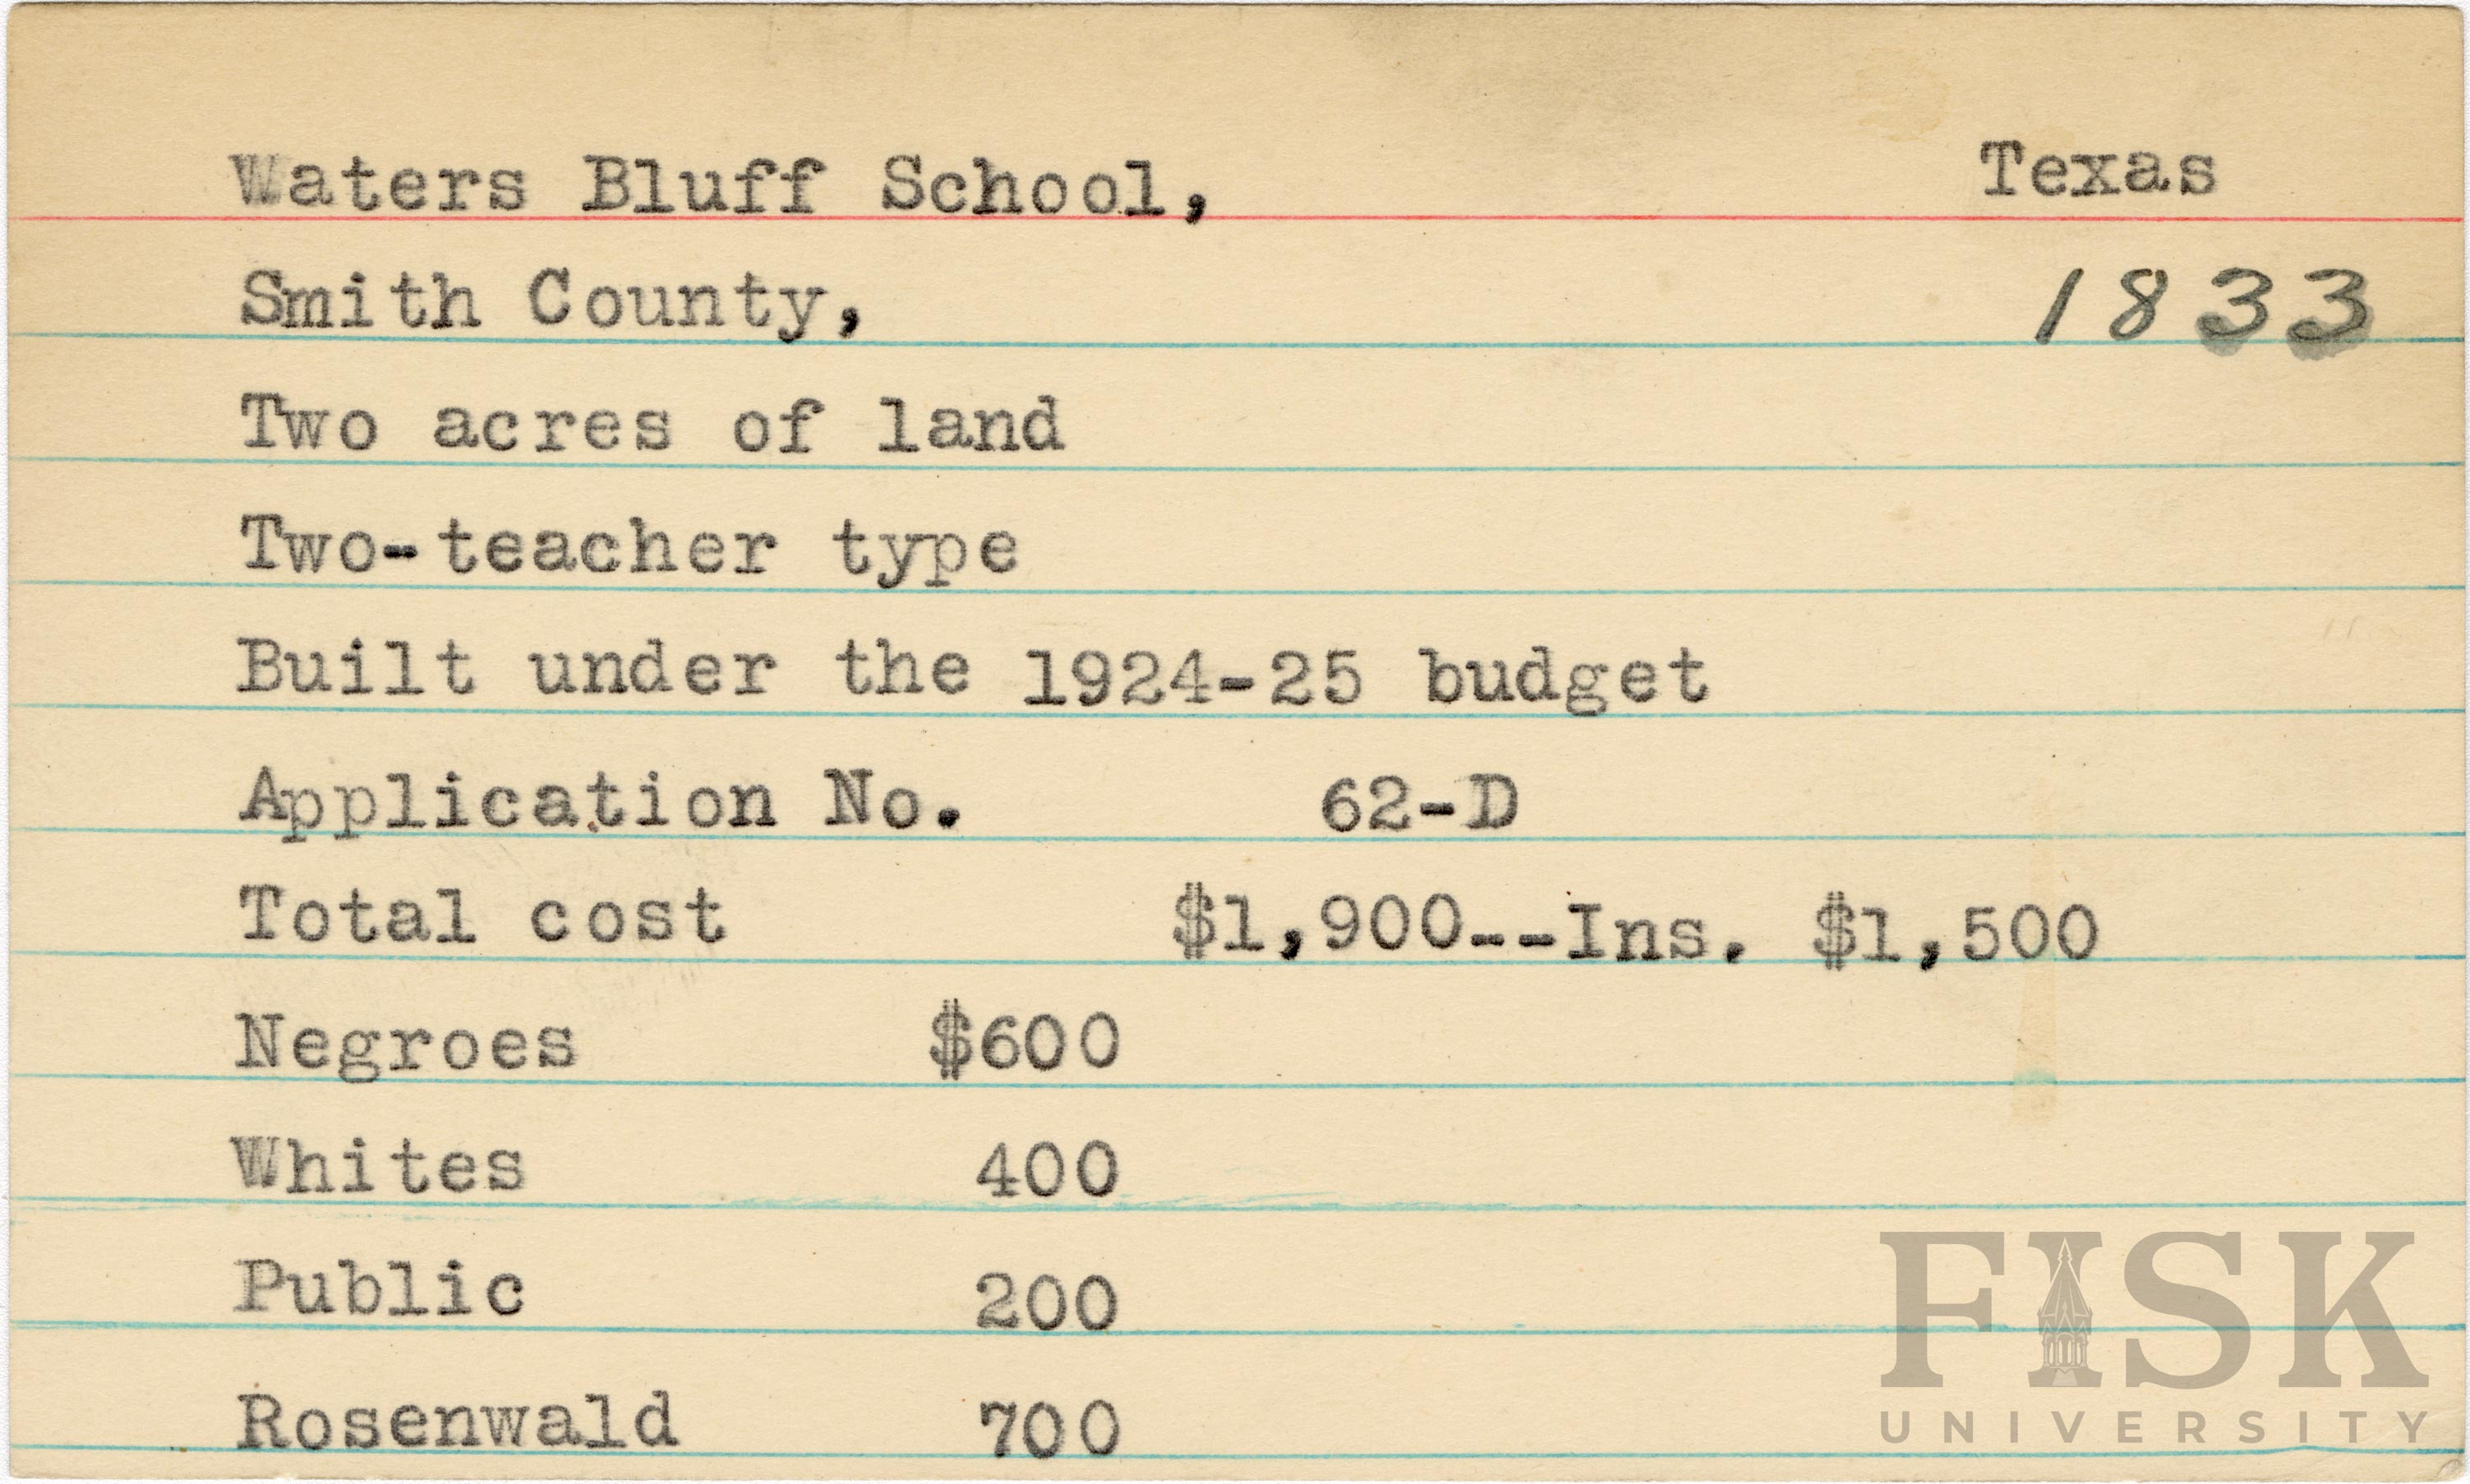 Waters Bluff School, Texas
Smith County, 1833
Two acres of land
Two-teacher type
Built under the 1924-25 budget
Application No. 62-D
Total cost $1,900--Ins. $1,500
Negroes $600
Whites 400
Public 200
Rosenwald 700
FISK
UNIVERSITY